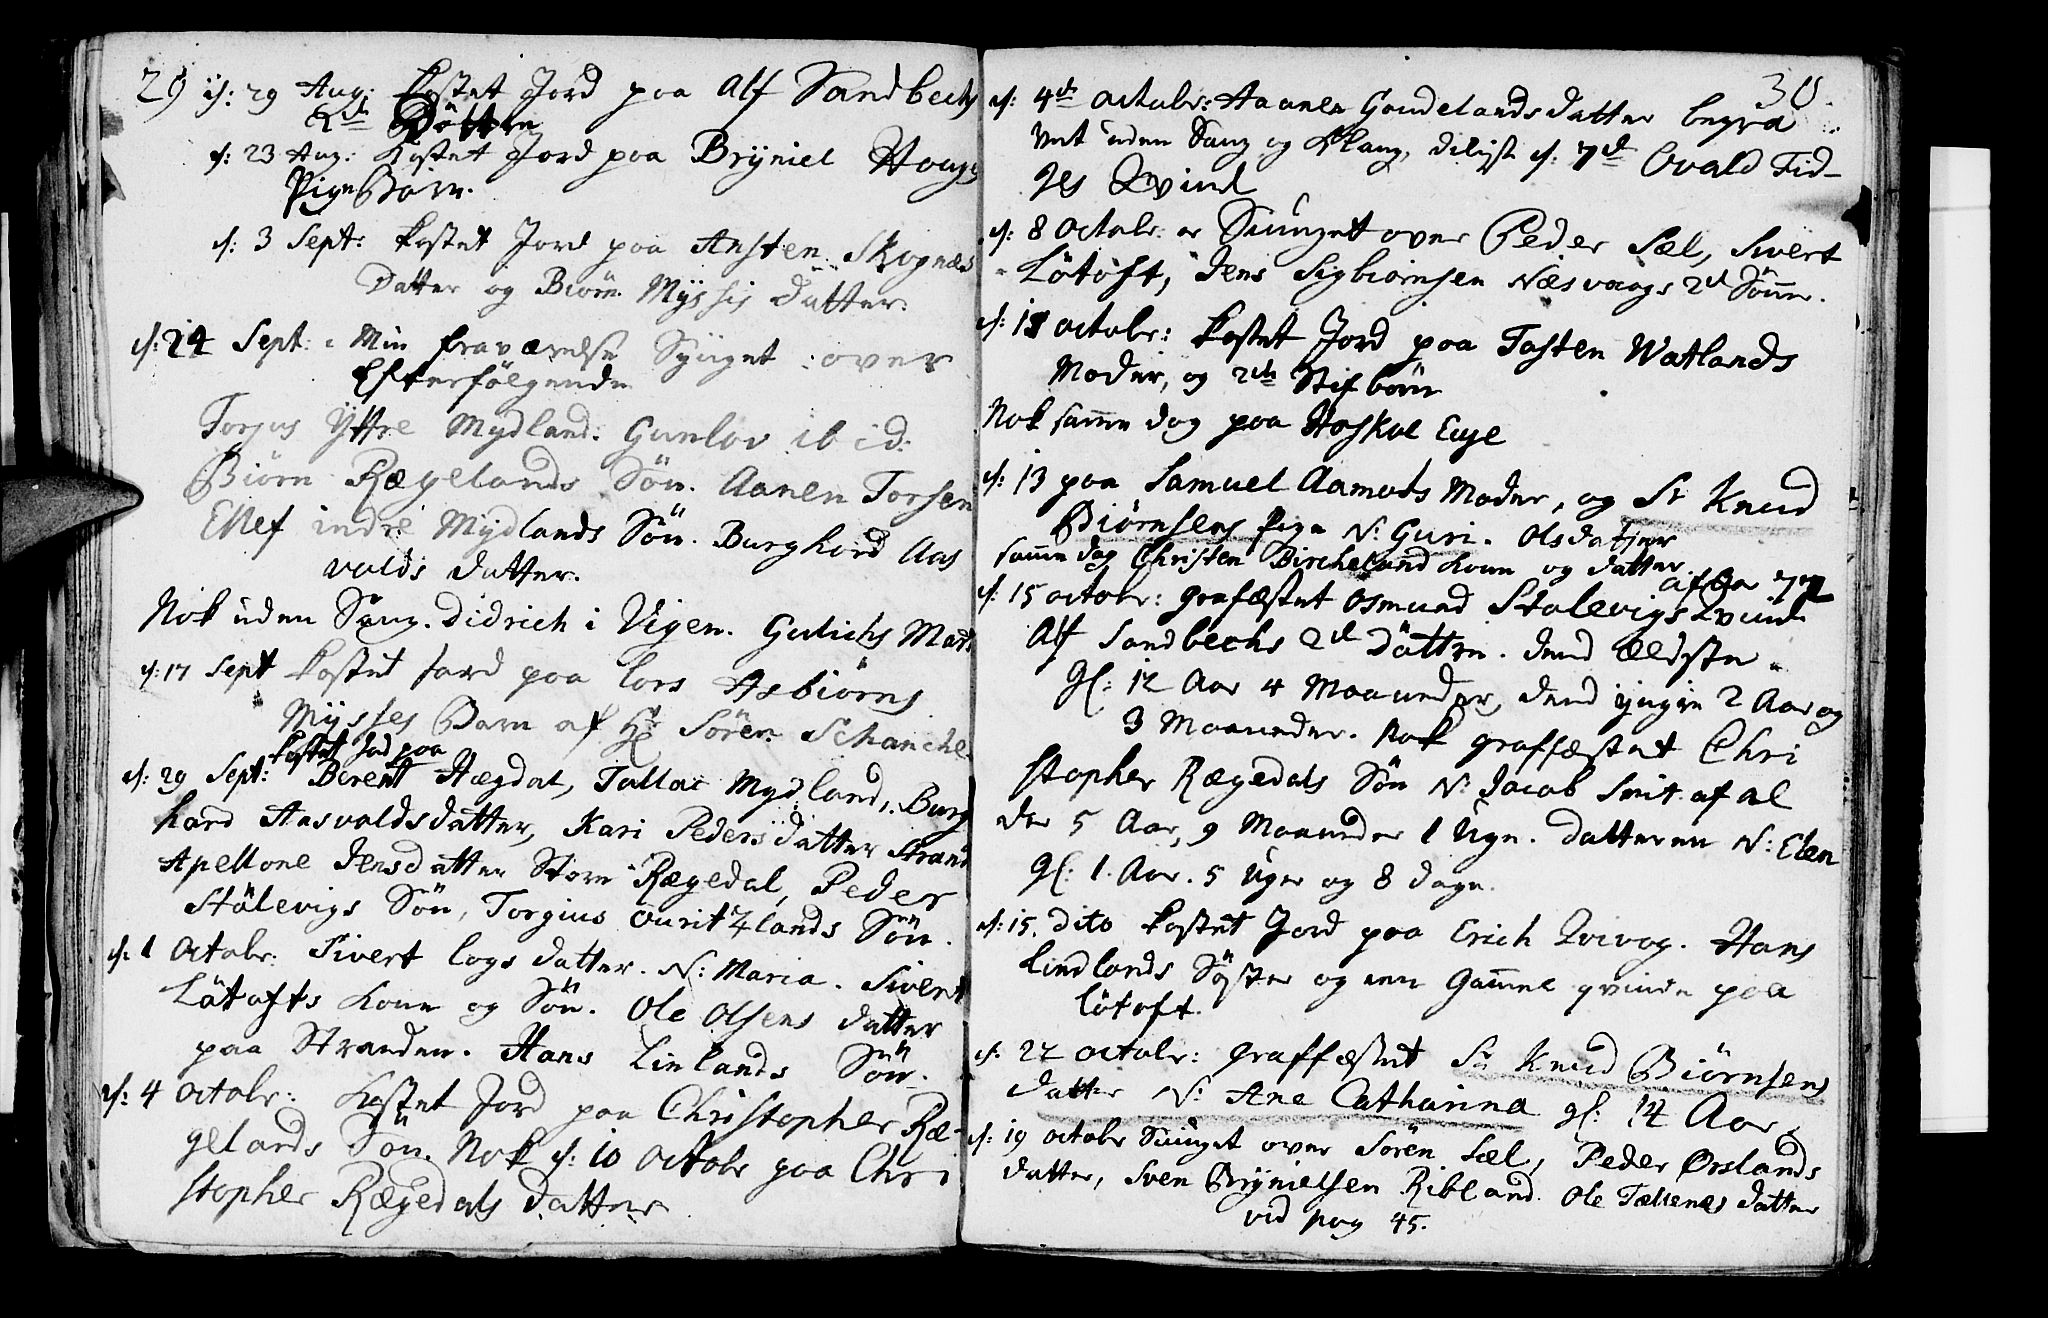 29 d: 29 Aug: kastet Jord paa Alf Sandbechs
2de Döttre
d: 23 Aug: kastet Jord paa Brÿniel Houges
Pige Barn.
d: 3 Sept: kastet Jord paa Ansten Skognæs
Datter og Biörn Mÿssis datter.
d: 24 Sept: i Min fraværelse Sÿnget over
Efterfölgende
Torjus Yttre Mydland. Gunlov ibid:
Biörn Rægelands Sön. Aanen Torsen
Ellef indre Mydlands Sön. Burghord Aas
valds datter.
Nok uden Sang. Didrich i Vigen. Gulichs
d: 17 Sept kastet Jord paa Lars Asbiörns
Mÿsses Barn af Hr Sören Schanche
kastet Jord paa
d: 29 Sept: Berent Hægdal, Tallac Mydland, Burg
hard Aasvaldsdatter, Kari Pedersdatter Strand
Apellone Jensdatter Store Rægedal, Peder
Stölevigs Sön, Torgius Ouritzlands Sön.
d: 1 Octobr: Sivert Logs datter. N: Maria. Sivert
Lötofts kone og Sön. Ole Olsens datter
paa Stranden. Hans Linlands Sön.
d: 4 Octobr: Kastet Jord paa Christopher Ræ-
gelands Sön. Nok d: 10 Octobr paa Chri
stopher Rægedals datter
30.
d: 4de Octobr: Aanen Goudelandsdatter begra
vet uden Sang og Klang, deligst d: 7de Ovald Fid-
jes Qvind
d: 8 Octobr: er Siunget over Peder Sæl, Sivert
Lötoft, Jens Sigbiörnsen Næsvaags 2de Sönner.
d: 13 Octobr: kastet Jord paa Tosten Watlands
Moder, og 2de Stifbörn
Nok samme dag paa Haskoe Eeye
d: 13 paa Samuel Aamods Moder, og Sr Knud
Biörnsens Pige N: Guri Olsdatter
samme dag Christen Bircheland kone og datter
d: 15 Octobr: grafæstet Osmund Stalevigs Qvind
af Aar 77
Alf Sandbechs 2de Döttre. Dend ældste
gl: 12 Aar 4 Maaneder, dend ÿngre 2 Aar og
3 Maaneder. Nok graffæstet Chri
stopher Rægedals Sön N: Jacob Smit af al
der 5 Aar, 9 Maaneder 1 Uge. Datteren N: Elen
gl: 1 Aar. 5 Uger og 8 dage.
d: 15. dito kastet Jord paa Erich Qvivog. Hans
Lindlands Söster og een Gamel qvinde paa
Lötoft.
d: 22 Octobr: graffæstet Sr Knud Biörnsens
datter N: Ane Catharina gl: 14 Aar.
d: 19 octobr Siunget over Sören Sæl, Peder Ørslands
datter, Sven Brÿnielsen Ribland. Ole Tællenes datter
vid pag 45.